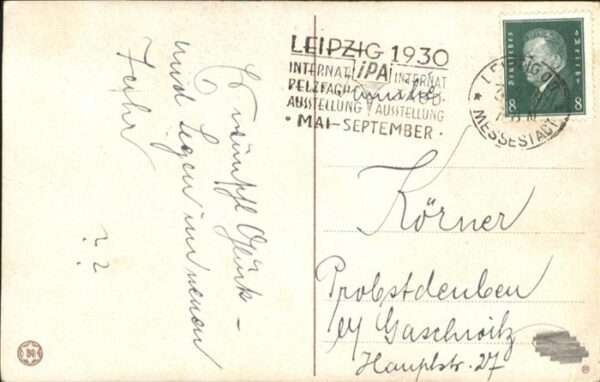 Es wünscht Glück-
und Segen im neuen
Jahr
??
LEIPZIG 1930
INTERNAT. iPA INTERNAT
PELZFACH
AUSSTELLUNG AUSSTELLUNG
• MAI-SEPTEMBER •
Deutsches Reich
8 8
LEIPZIG
* MESSESTADT
Körner
Probstdeuben
b/ Gaschwitz
Hauptstr. 27